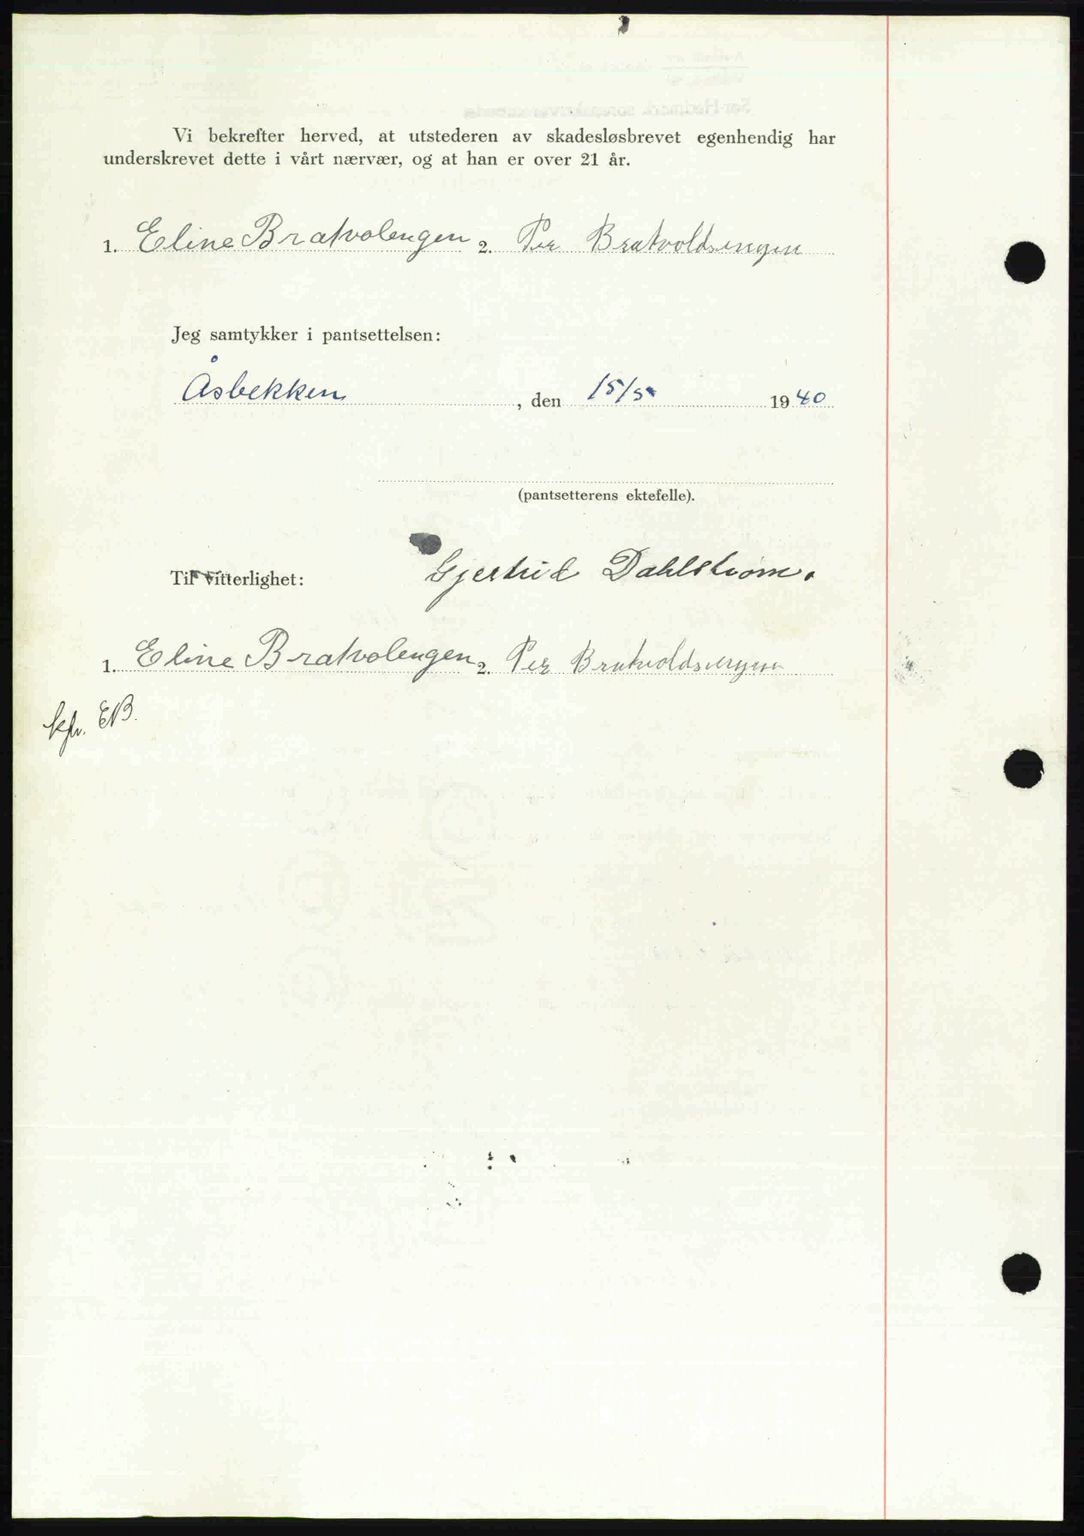 Vi bekrefter herved, at utstederen av skadesløsbrevet egenhendig har
underskrevet dette i vårt nærvær, og at han er over 21 år.
1. Eline Bratvolengen 2. Per Bratvoldsengen
Jeg samtykker i pantsettelsen:
Åsbekken, den 15/5 1940
(pantsetterens ektefelle).
Til vitterlighet: Gjertrid Dahlstrøm.
1. Eline Bratvolengen 2. Per Bratvoldsengen
kfr. EB.